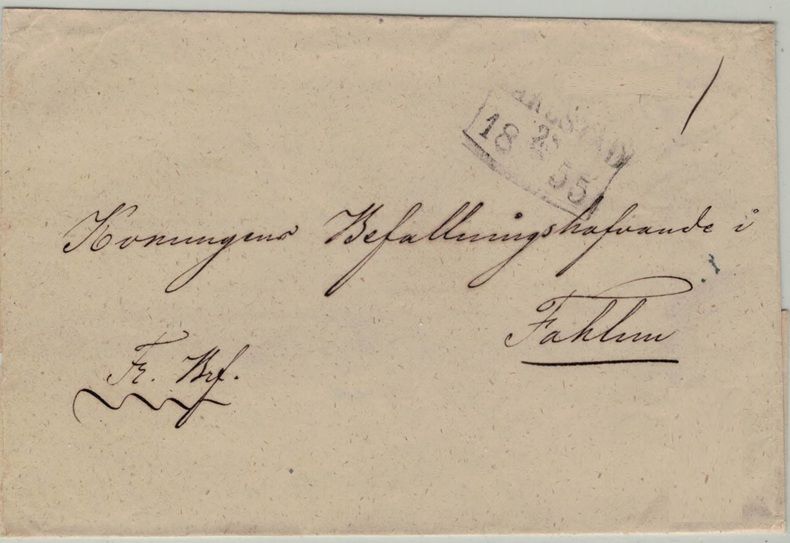 18 55
Konungens Befallningshafvande i
Fahlun
Fr. Brf.